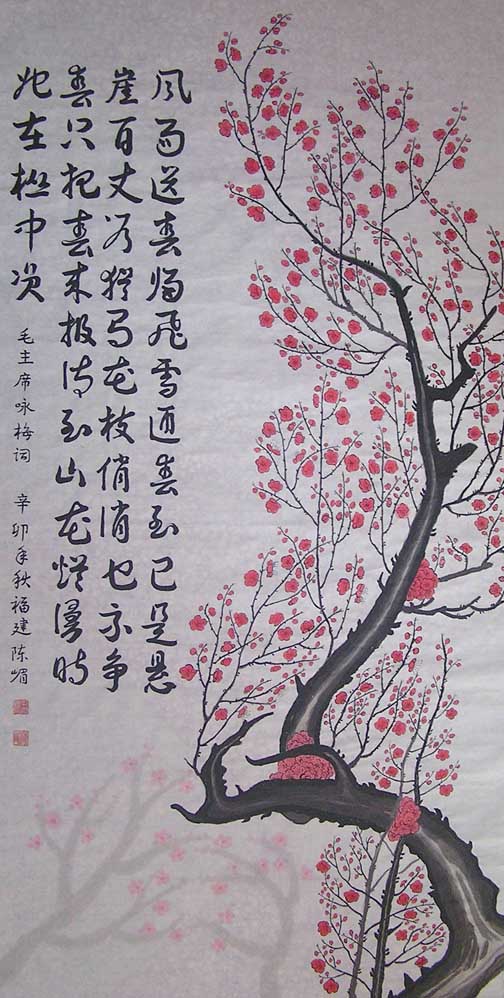 风雨送春归飞雪迎春到已是悬
崖百丈冰犹有花枝俏俏也不争
春只把春来报待到山花烂漫时
她在丛中笑
毛主席咏梅词 辛卯年秋福建陈